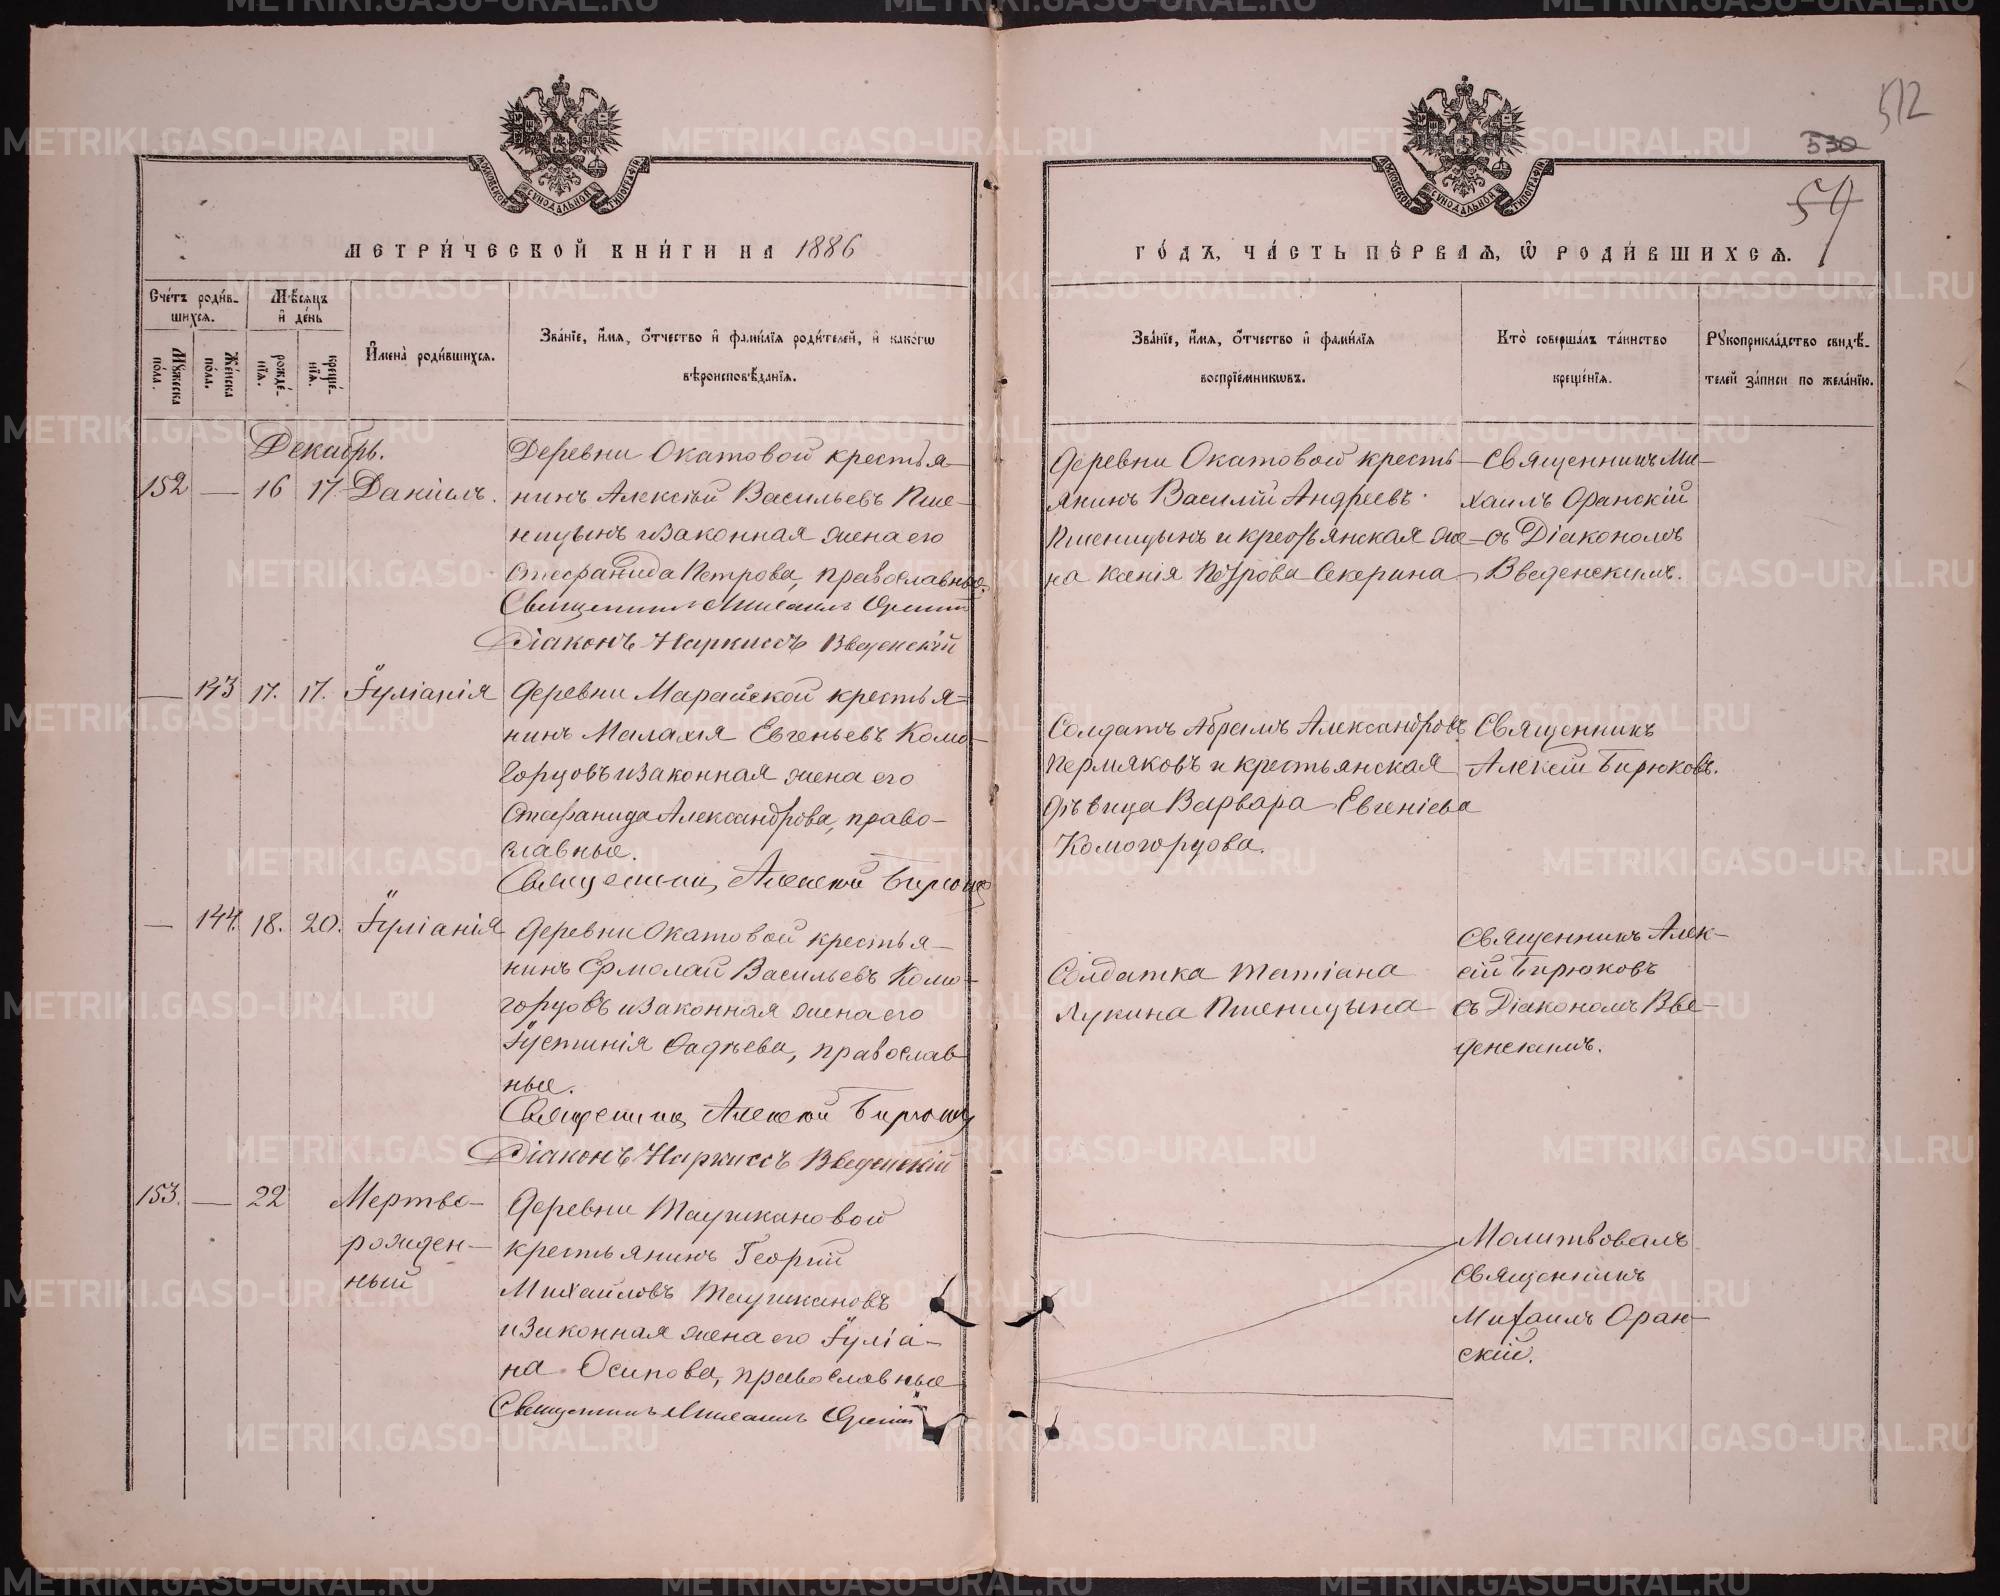 512
530
54
МЕТРИ́ЧЕСКОЙ КНИ́ГИ НА 1886
ГО́ДЪ, ЧА́СТЬ ПЕ́РВАѦ, Ѡ҆ РОДИ́ВШИХСѦ.
Сче́тъ роди́в-
шихсѧ.
Мꙋжеска
по́ла.
Же́нска
по́ла.
Мѣ́сѧцъ
и҆ де́нь
рожде́-
нїѧ.
креще́-
нїѧ.
И҆мена̀ роди́вшихсѧ.
Зва́нїе, и҆́мѧ, ѻ҆́тчество и҆ фами́лїѧ роди́телей, и҆ како́гѡ
вѣроисповѣ́данїѧ.
Зва́нїе, и҆́мѧ, ѻ҆́тчество и҆ фами́лїѧ
воспрїе́мникѡвъ.
Кто̀ соверша́лъ та́инство
креще́нїѧ.
Рꙋкоприкла́дство свидѣ́-
телей за́писи по жела́нїю.
Декабрь.
152 — 16 17 Данiилъ.
Деревни Окатовой крестья-
нинъ Алексѣй Васильевъ Пше-
ницынъ и законная жена его
Стефанида Петрова, православные.
Священникъ Михаилъ Оранскiй
Дiаконъ Наркиссъ Введенскiй
Деревни Окатовой кресть-
янинъ Василiй Андреевъ
Пшеницынъ и крестьянская же-
на Ксенiя Петрова Секерина
Священникъ Ми-
хаилъ Оранскiй
съ Дiакономъ
Введенскимъ.
— 143 17. 17. Iулiанiя
Деревни Марайской крестья-
нинъ Малахiя Евгеньевъ Комо-
горцовъ и законная жена его
Стефанида Александрова, право-
славные.
Священникъ Алексей Бирюковъ
Солдатъ Абрамъ Александровъ
Пермяковъ и крестьянская
дѣвица Варвара Евгенiева
Комогорцова.
Священникъ
Алексiй Бирюковъ.
— 144. 18. 20. Iулiанiя
Деревни Окатовой крестья-
нинъ Ермолай Васильевъ Комо-
горцовъ и законная жена его
Iустинiя Фадѣева, православ
ные.
Священникъ Алексей Бирюковъ
Дiаконъ Наркиссъ Введенскiй
Солдатка Татiана
Лукина Пшеницына
Священникъ Алек-
сiй Бирюковъ
съ Дiакономъ Вве-
денскимъ.
153. — 22 Мертво-
рожден-
ный
Деревни Таушкановой
крестьянинъ Георгiй
Михайловъ Таушкановъ
и законная жена его Iулiа-
на Осипова, православные
Священникъ Михаилъ Оранскiй
Молитвовалъ
Священникъ
Михаилъ Оран-
скiй.